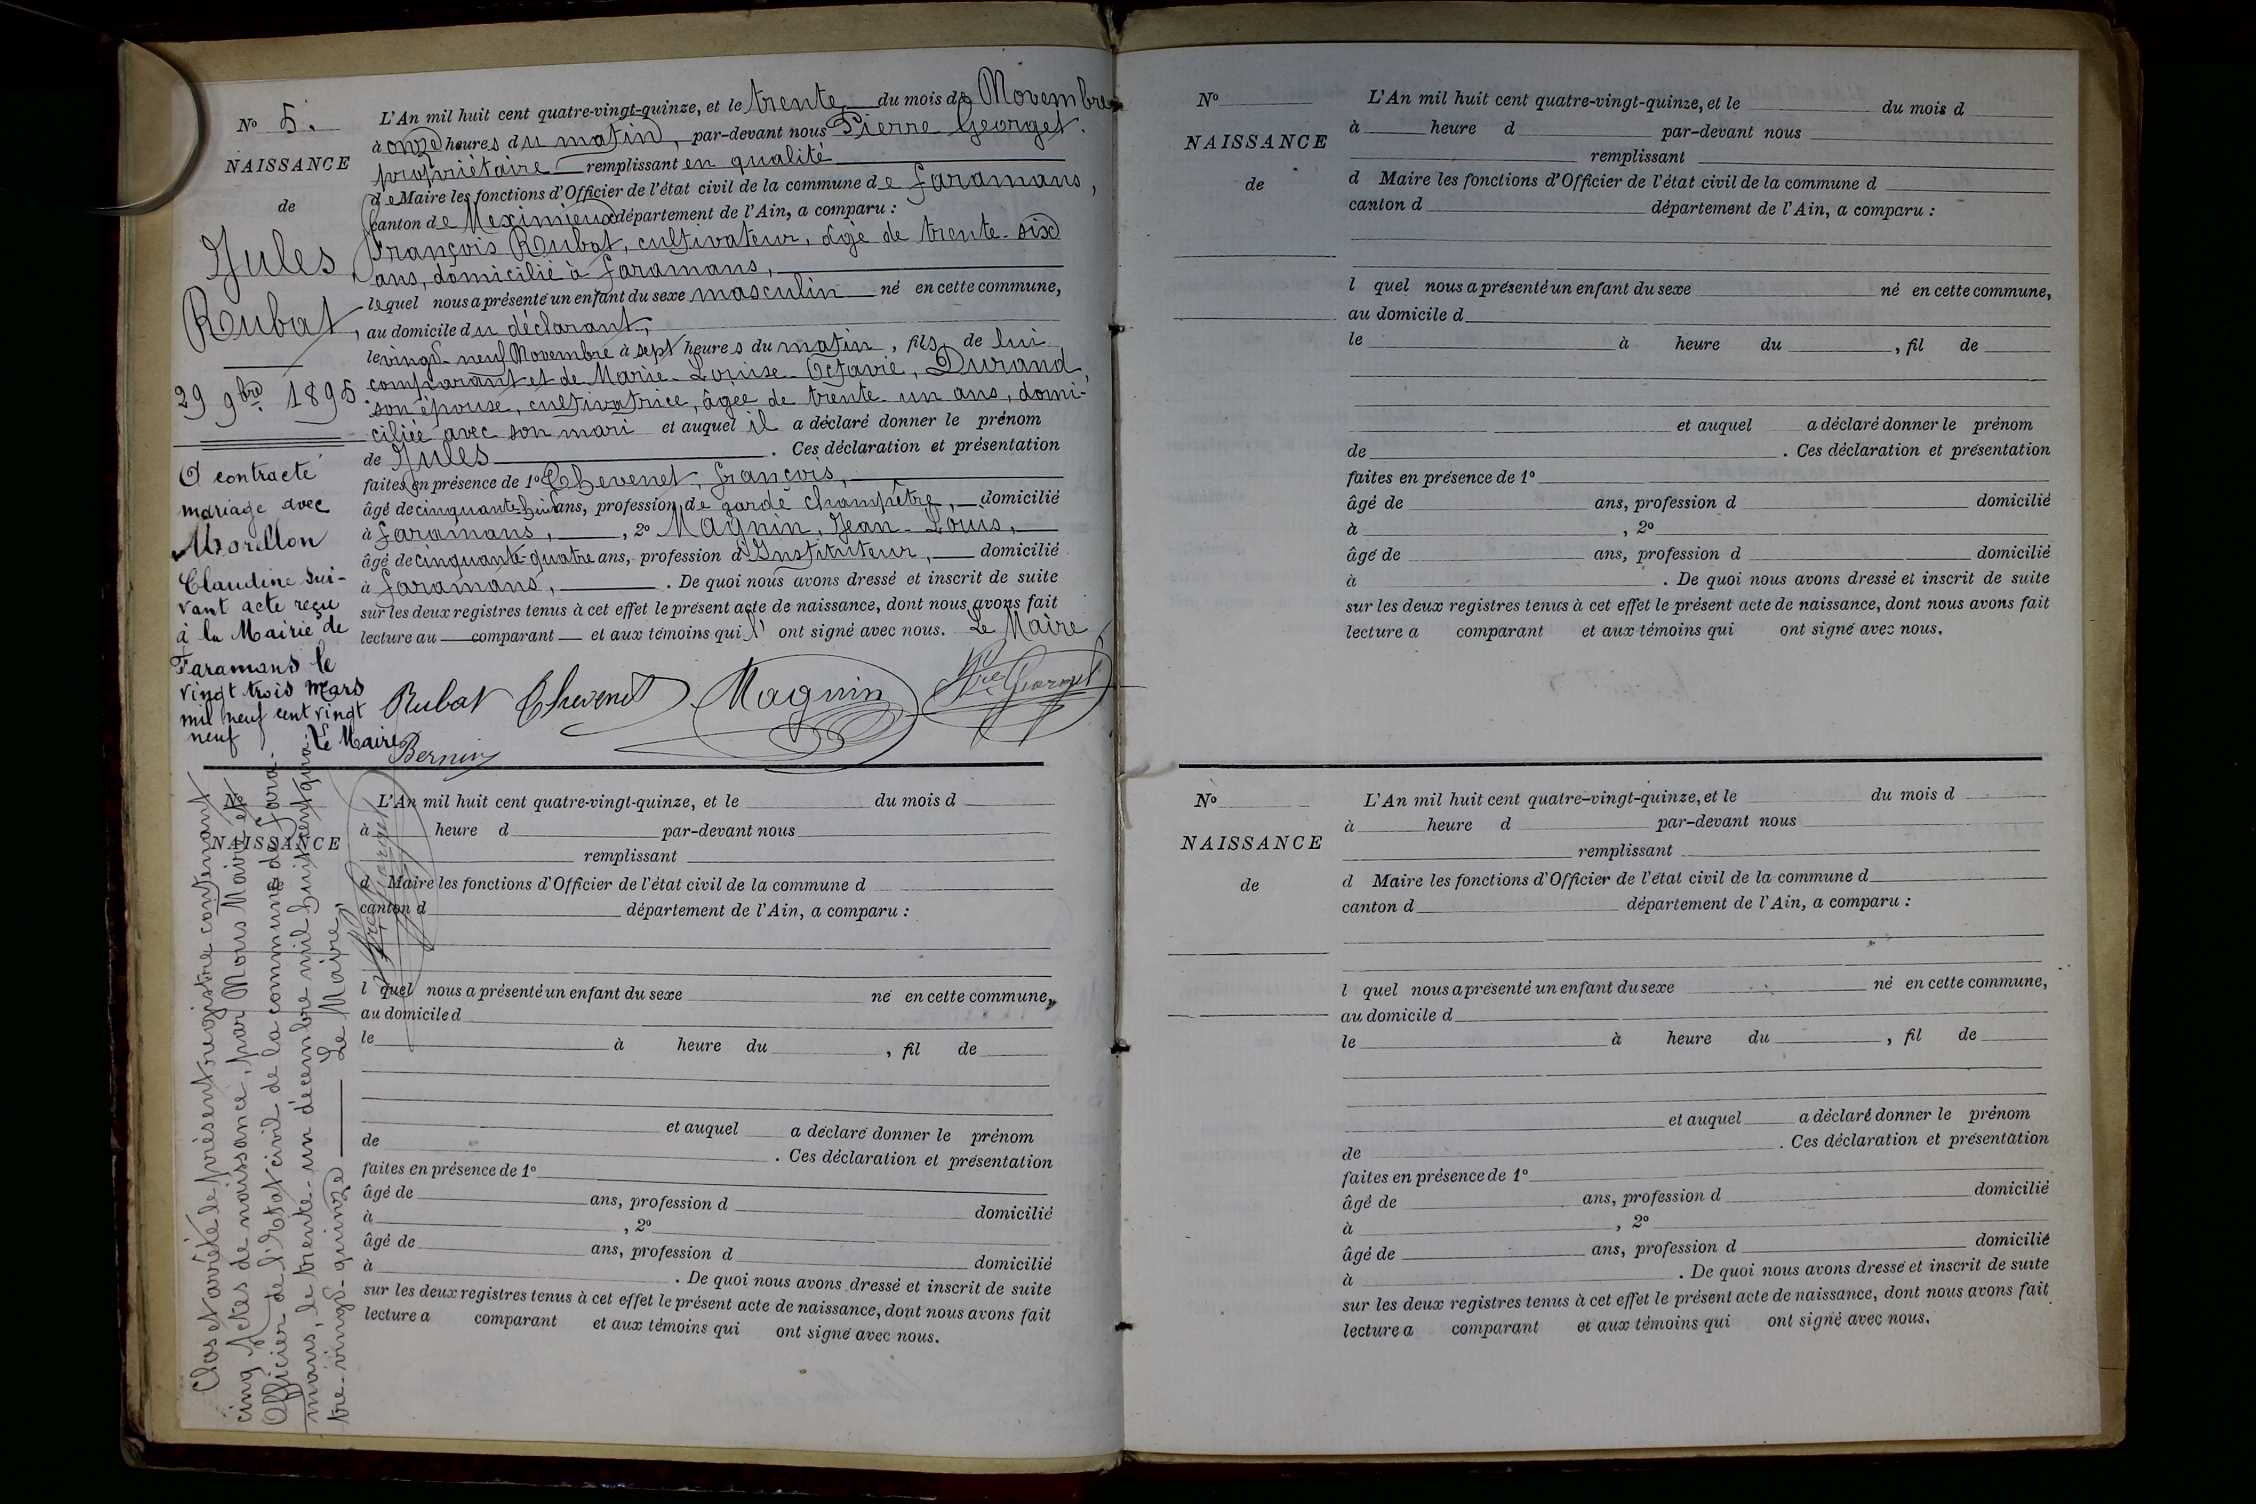 No 5.
NAISSANCE
de
Jules
Roubat,
29 9bre 1895.
A contracté
mariage avec
Morellon
Claudine sui-
vant acte reçu
à la Mairie de
Faramans le
vingt trois mars
mil neuf cent vingt
neuf
Le Maire
Bernin
L'An mil huit cent quatre-vingt-quinze, et le trente du mois de Novembre
à onze heures du matin, par-devant nous Pierre Georget.
propriétaire remplissant en qualité
de Maire les fonctions d'Officier de l'état civil de la commune de Faramans,
canton de Meximieux département de l'Ain, a comparu :
François Roubat, cultivateur, âgé de trente-six
ans, domicilié à Faramans,
lequel nous a présenté un enfant du sexe masculin né en cette commune,
au domicile du déclarant,
le vingt-neuf Novembre à sept heures du matin, fils de lui
comparant et de Marie-Louise-Octavie, Durand
son épouse, cultivatrice, âgée de trente-un ans, domi-
ciliée avec son mari et auquel il a déclaré donner le prénom
de Jules. Ces déclaration et présentation
faites en présence de 1o Chevenet, François,
âgé de cinquante-huit ans, profession de garde champêtre, domicilié
à Faramans, , 2o Magnin, Jean-Louis,
âgé de cinquante-quatre ans, profession d'Instituteur, domicilié
à Faramans, . De quoi nous avons dressé et inscrit de suite
sur les deux registres tenus à cet effet le présent acte de naissance, dont nous avons fait
lecture au comparant et aux témoins qui l' ont signé avec nous. Le Maire
Rubat Chevenet Magnin Pre Georget
Clos et arrêté le présent registre contenant
cinq Actes de naissance, par Nous Maire et
Officier de l'Etat civil de la commune de Fara-
mans, le trente-un décembre mil huit cent qua-
tre-vingt-quinze Le Maire,
Pre Georget
No
NAISSANCE
L'An mil huit cent quatre-vingt-quinze, et le du mois d
à heure d par-devant nous
remplissant
d Maire les fonctions d'Officier de l'état civil de la commune d
canton d département de l'Ain, a comparu :
l quel nous a présenté un enfant du sexe né en cette commune,
au domicile d
le à heure du , fil de
et auquel a déclaré donner le prénom
de . Ces déclaration et présentation
faites en présence de 1o
âgé de ans, profession d domicilié
à , 2o
âgé de ans, profession d domicilié
à . De quoi nous avons dressé et inscrit de suite
sur les deux registres tenus à cet effet le présent acte de naissance, dont nous avons fait
lecture a comparant et aux témoins qui ont signé avec nous.
No
NAISSANCE
de
L'An mil huit cent quatre-vingt-quinze, et le du mois d
à heure d par-devant nous
remplissant
d Maire les fonctions d'Officier de l'état civil de la commune d
canton d département de l'Ain, a comparu :
l quel nous a présenté un enfant du sexe né en cette commune,
au domicile d
le à heure du , fil de
et auquel a déclaré donner le prénom
de . Ces déclaration et présentation
faites en présence de 1o
âgé de ans, profession d domicilié
à , 2o
âgé de ans, profession d domicilié
à . De quoi nous avons dressé et inscrit de suite
sur les deux registres tenus à cet effet le présent acte de naissance, dont nous avons fait
lecture a comparant et aux témoins qui ont signé avec nous.
No
NAISSANCE
de
L'An mil huit cent quatre-vingt-quinze, et le du mois d
à heure d par-devant nous
remplissant
d Maire les fonctions d'Officier de l'état civil de la commune d
canton d département de l'Ain, a comparu :
l quel nous a présenté un enfant du sexe né en cette commune,
au domicile d
le à heure du , fil de
et auquel a déclaré donner le prénom
de . Ces déclaration et présentation
faites en présence de 1o
âgé de ans, profession d domicilié
à , 2o
âgé de ans, profession d domicilié
à . De quoi nous avons dressé et inscrit de suite
sur les deux registres tenus à cet effet le présent acte de naissance, dont nous avons fait
lecture a comparant et aux témoins qui ont signé avec nous.